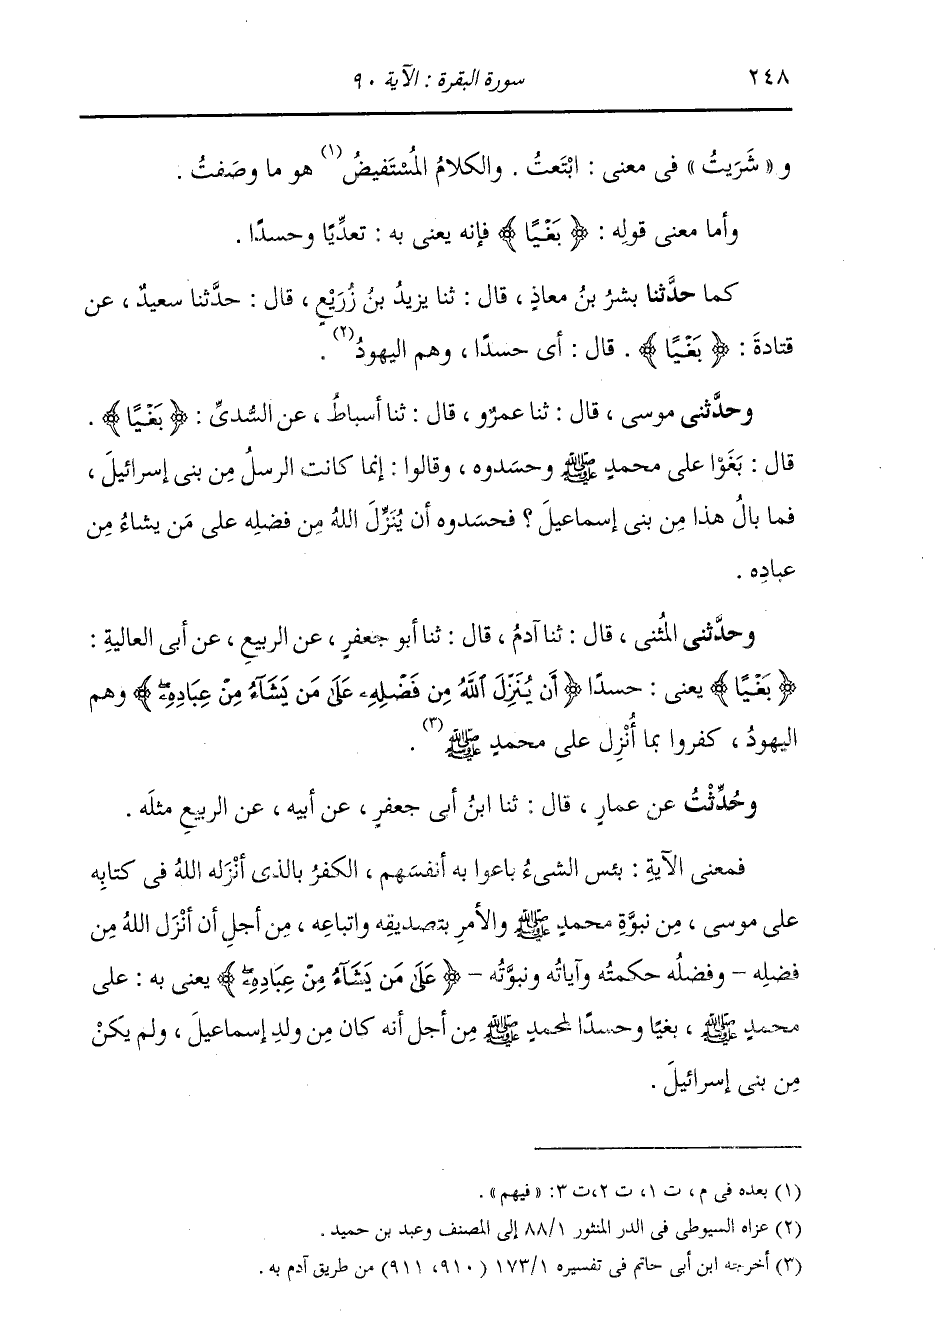 ٢٤٨ سورة البقرة : الآية ٩٠
و « شَرَيتُ » فى معنى : ابْتَعتُ . والكلامُ المُسْتَفيضُ(١) هو ما وصَفتُ .
وأما معنى قولِه : ﴿ بَغْيًا ﴾ فإنه يعنى به : تعدِّيًا وحسدًا .
كما حدَّثنا بشرُ بنُ معاذٍ ، قال : ثنا يزيدُ بنُ زُرَيْعٍ ، قال : حدَّثنا سعيدٌ ، عن
قتادةَ : ﴿ بَغْيًا ﴾ . قال : أى حسدًا ، وهم اليهودُ(٢) .
وحدَّثنى موسى ، قال : ثنا عمرٌو ، قال : ثنا أسباطُ ، عن السُّدىِّ : ﴿ بَغْيًا ﴾ .
قال : بَغَوْا على محمدٍ ﷺ وحسَدوه ، وقالوا : إنما كانت الرسلُ مِن بنى إسرائيلَ ،
فما بالُ هذا مِن بنى إسماعيلَ ؟ فحسَدوه أن يُنَزِّلَ اللهُ مِن فضلِه على مَن يشاءُ مِن
عبادِه .
وحدَّثنى المُثنى ، قال : ثنا آدمُ ، قال : ثنا أبو جعفرٍ ، عن الربيعِ ، عن أبى العاليةِ :
﴿ بَغْيًا ﴾ يعنى : حسدًا ﴿ أَن يُنَزِّلَ ٱللَّهُ مِن فَضْلِهِۦ عَلَىٰ مَن يَشَآءُ مِنْ عِبَادِهِۦۖ ﴾ وهم
اليهودُ ، كفروا بما أُنْزِل على محمدٍ ﷺ(٣) .
وحُدِّثْتُ عن عمارٍ ، قال : ثنا ابنُ أبى جعفرٍ ، عن أبيه ، عن الربيعِ مثلَه .
فمعنى الآيةِ : بئس الشىءُ باعوا به أنفسَهم ، الكفرُ بالذى أنْزَله اللهُ فى كتابِه
على موسى ، مِن نبوَّةِ محمدٍ ﷺ والأمرِ بتصديقِه واتباعِه ، مِن أجلِ أن أنْزَل اللهُ مِن
فضلِه – وفضلُه حكمتُه وآياتُه ونبوَّتُه – ﴿ عَلَىٰ مَن يَشَآءُ مِنْ عِبَادِهِۦۖ ﴾ يعنى به : على
محمدٍ ﷺ ، بغيًا وحسدًا لمحمدٍ ﷺ مِن أجل أنه كان مِن ولدِ إسماعيلَ ، ولم يكنْ
مِن بنى إسرائيلَ .
(١) بعده فى م ، ت ١، ت ٢،ت ٣: « فيهم » .
(٢) عزاه السيوطى فى الدر المنثور ٨٨/١ إلى المصنف وعبد بن حميد .
(٣) أخرجه ابن أبى حاتم فى تفسيره ١٧٣/١ (٩١٠، ٩١١) من طريق آدم به .